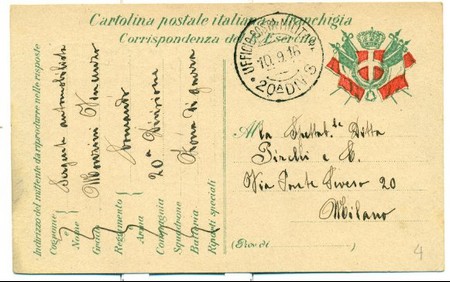 Cartolina postale italiana in franchigia
Corrispondenza del R. Esercito
UFFICIO POSTA MILITARE
10.9.16
20ª DIVIS
Indirizzo del mittente da riprodurre nelle risposte
Cognome
Nome
Grado
Reggimento
Arma
Compagnia
Squadrone
Batteria
Riparti speciali
Sergente automobilista
Vincenzo
Comando
20ª Divisione
Zona di guerra
Alla Spettab.le Ditta
&
Via Ponte Seveso 20
Milano
4